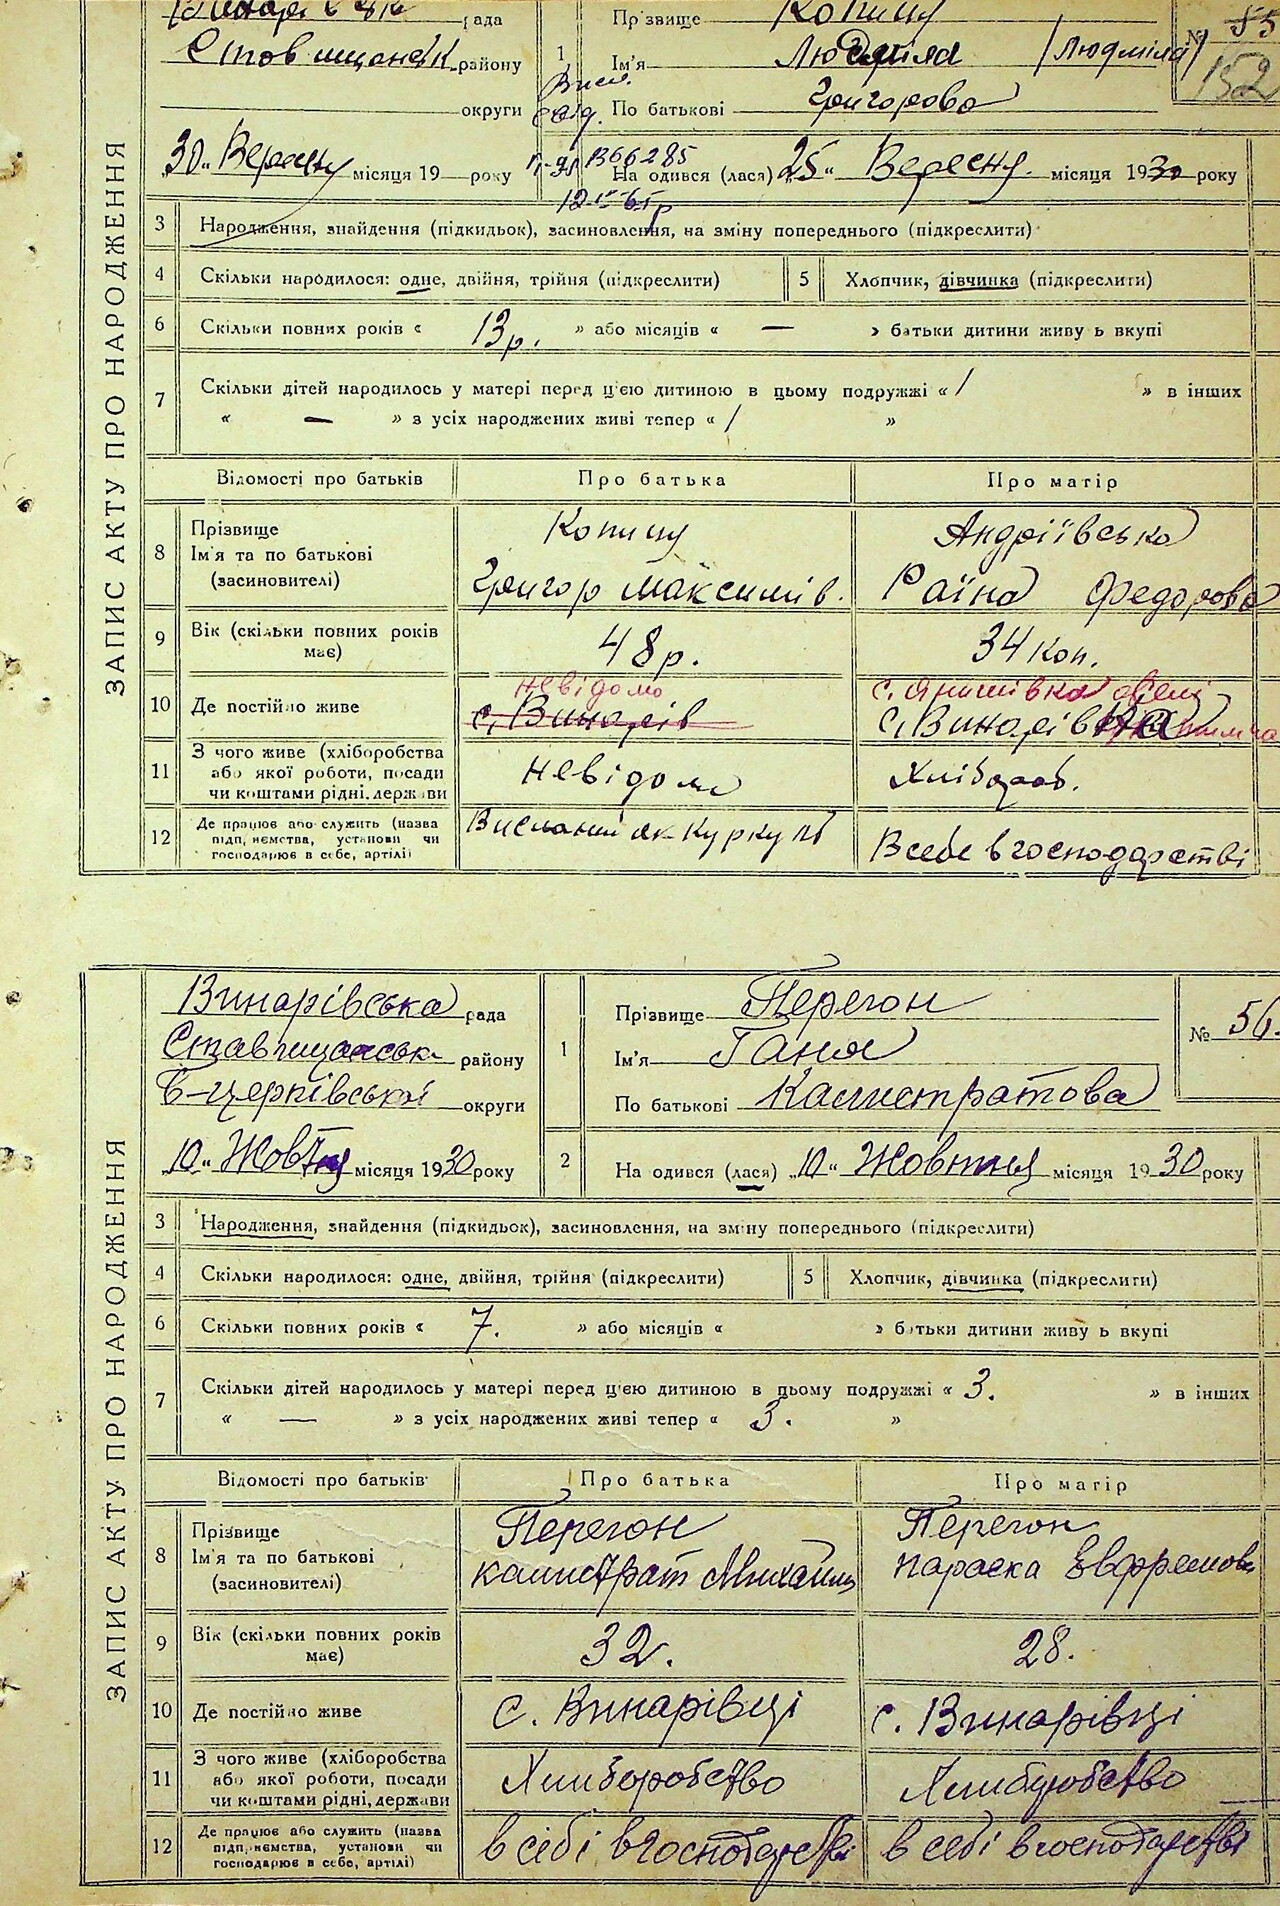 рада Прізвище Копищ № 55
Ставищанськ. району 1 Ім'я Людмила /Людміла/ 152
округи По батькові Григорова
30 „ Вересня місяця 19 року В66285 На одився (лася) 25 „ Вересня місяця 1930 року
3 Народження, знайдення (підкидьок), засиновлення, на зміну попереднього (підкреслити)
4 Скільки народилося: одне, двійня, трійня (підкреслити) 5 Хлопчик, дівчинка (підкреслити)
6 Скільки повних років « 13 р. » або місяців « — » батьки дитини живу ь вкупі
7 Скільки дітей народилось у матері перед цією дитиною в цьому подружжі « 1 » в інших
« — » з усіх народжених живі тепер « 1 »
Відомості про батьків Про батька Про матір
8 Прізвище Андріївська
Ім'я та по батькові Григор Максимів. Раїна Федорова
(засиновителі)
9 Вік (скільки повних років має) 48 р. 34
невідомо с. Янишівка
10 Де постійно живе с. Винарів с. Винарівка
11 З чого живе (хліборобства або якої роботи, посади чи коштами рідні, держави невідомо Хлібороб.
12 Де працює або служить (назва підприємства, установи чи господарює в себе, артілі) Висланий як куркуль В себе в господарстві
ЗАПИС АКТУ ПРО НАРОДЖЕННЯ
Винарівська рада Прізвище Перегон № 56.
Ставищанськ району 1 Ім'я Ганя
Б-церківської округи По батькові Калистратова
„10 „ Жовтня місяця 1930 року 2 На одився (лася) „10 „ Жовтня місяця 1930 року
3 Народження, знайдення (підкидьок), засиновлення, на зміну попереднього (підкреслити)
4 Скільки народилося: одне, двійня, трійня (підкреслити) 5 Хлопчик, дівчинка (підкреслити)
6 Скільки повних років « 7. » або місяців « » батьки дитини живу ь вкупі
7 Скільки дітей народилось у матері перед цією дитиною в цьому подружжі « 3. » в інших
« — » з усіх народжених живі тепер « 3. »
Відомості про батьків Про батька Про матір
8 Прізвище Перегон Перегон
Ім'я та по батькові Калистрат Михайлів Параска Евфремова
(засиновителі)
9 Вік (скільки повних років має) 32. 28.
10 Де постійно живе с. Винарівці с. Винарівці
11 З чого живе (хліборобства або якої роботи, посади чи коштами рідні, держави Хлиборобство Хлиборобство
12 Де працює або служить (назва підприємства, установи чи господарює в себе, артілі) в себі в господарстві в себі в господарстві
ЗАПИС АКТУ ПРО НАРОДЖЕННЯ